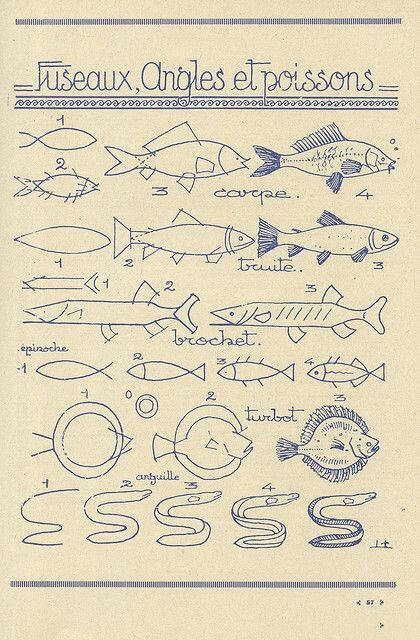 Fuseaux, Angles et poissons
1
2
3
carpe.
4
1
2
truite.
3
1
2
3
brochet.
épinoche
1
2
3
4
1
0
2
turbot
3
anguille
1
2
3
4
57